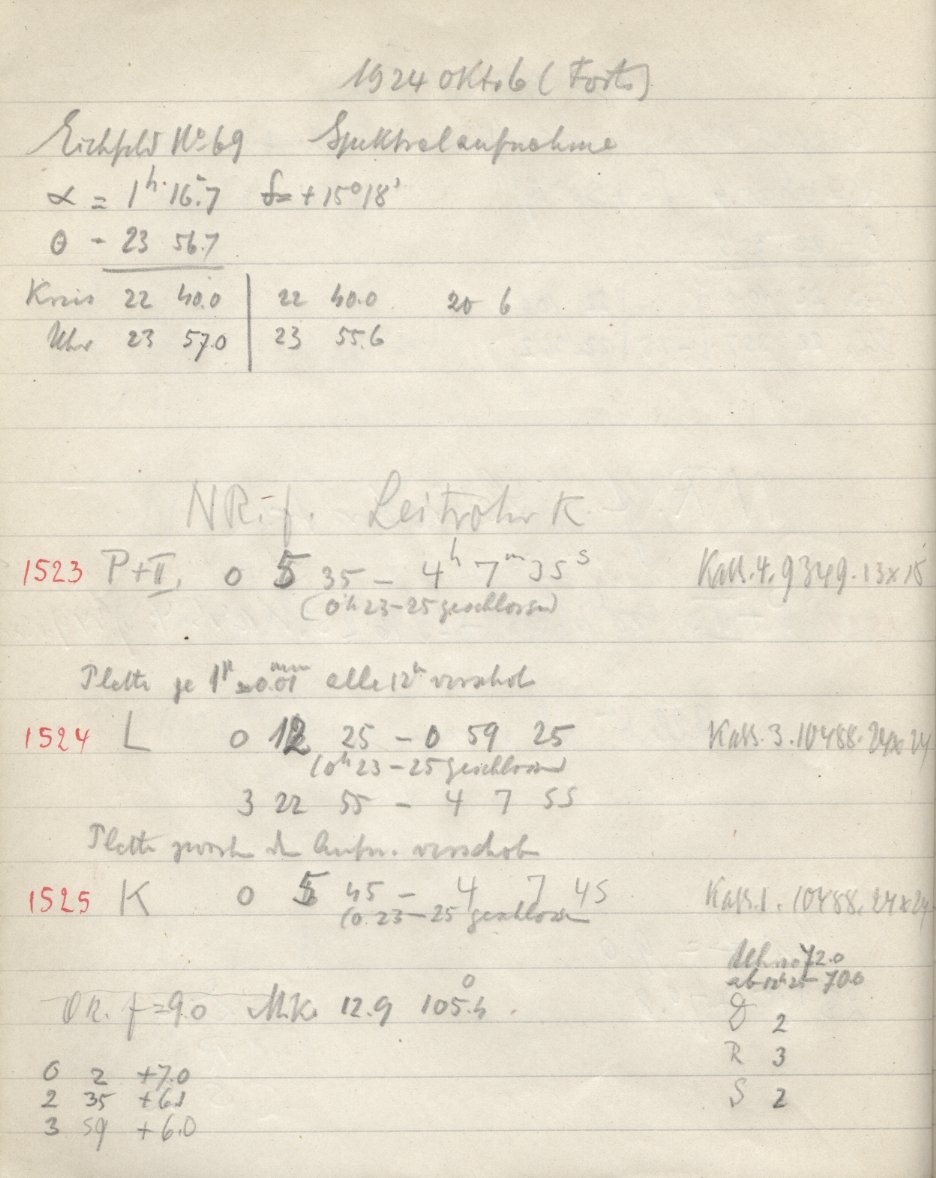 1924 Oktob (Forts)
Eichfeld No 69 Spektralaufnahme
α = 1h 16.m7 δ= +15°18'
θ - 23 56.7
Kreis 22 40.0 | 22 40.0 20 6
Uhr 23 57.0 | 23 55.6
NR. f. Leitrohr K
1523 P+II, 0 5 35 – 4h 7m 35s Kass. 4. 9349. 13x15
(0h 23–25 geschlossen)
Platte je 1h 0.01mm alle 12m verschob
1524 L 0 12 25 – 0 59 25 Kass. 3. 10488. 24x24
(0h 23–25 geschlossen)
3 22 55 – 4 7 55
Platte zwisch d. Aufn. verschob
1525 K 0 5 45 – 4 7 45 Kass. 1. 10488. 24x24
(0. 23–25 geschlossen
72.0
70.0
OR. f = 9.0 M.K. 12.9 105.°4
D 2
R 3
S 2
0 2 +7.0
2 35 +6.1
3 59 +6.0